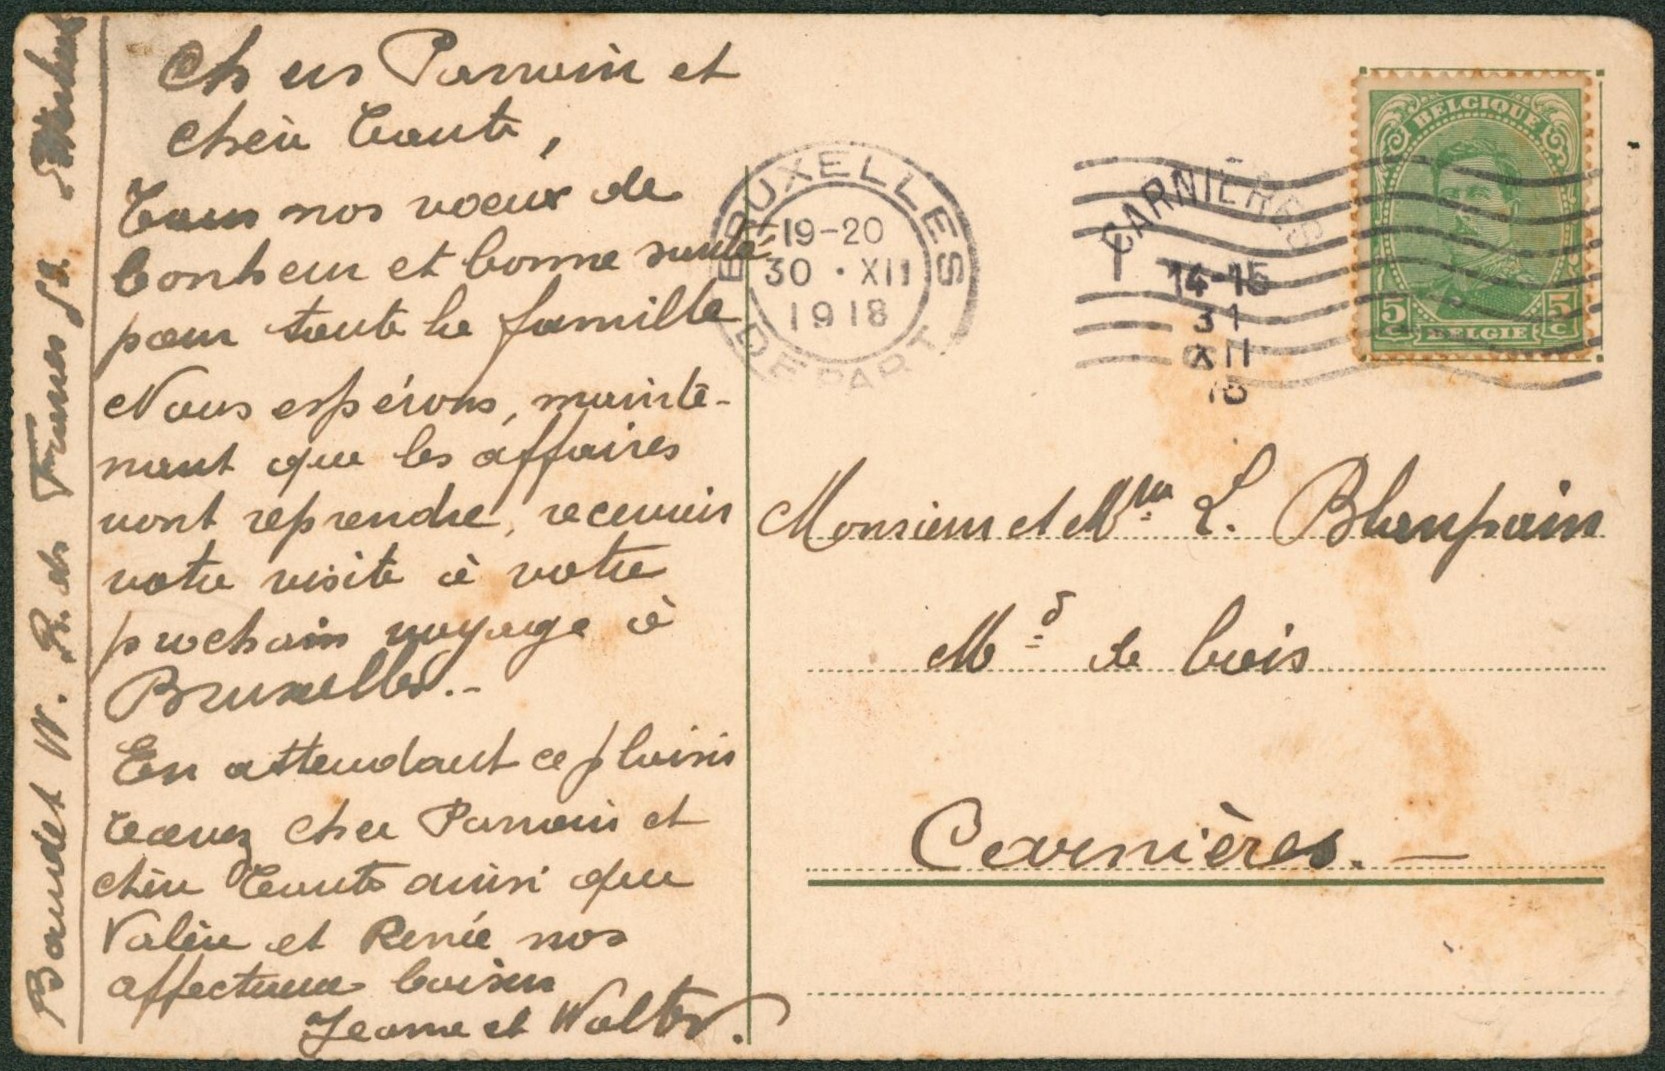 Chers Parrain et
chère Tante,
Tous nos voeux de
bonheur et bonne santé
pour toute la famille
Nous espérons, mainte-
nant que les affaires
vont reprendre, recevoir
votre visite à votre
prochain voyage à
Bruxelles.-
En attendant ce plaisir
recevez cher Parrain et
chère Tante ainsi que
Valère et Renée nos
affectueux baisers
Jeanne et Walter.
Baudet W. R. des
BRUXELLES
19-20
30 • XII
1918
DEPART
CARNIERES
14-15
31
XII
18
BELGIQUE
5 C
5 C
BELGIE
Monsieur et Mme L. Blanpain
Md de bois
Carnières. —